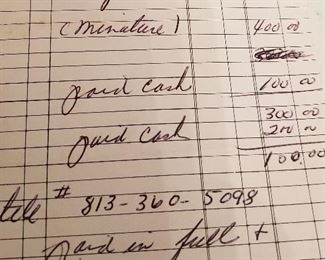 (Minature) 400 00
paid cash 100 00
300 00
paid cash 200 00
100.00
tele # 813-360-5098
paid in full +